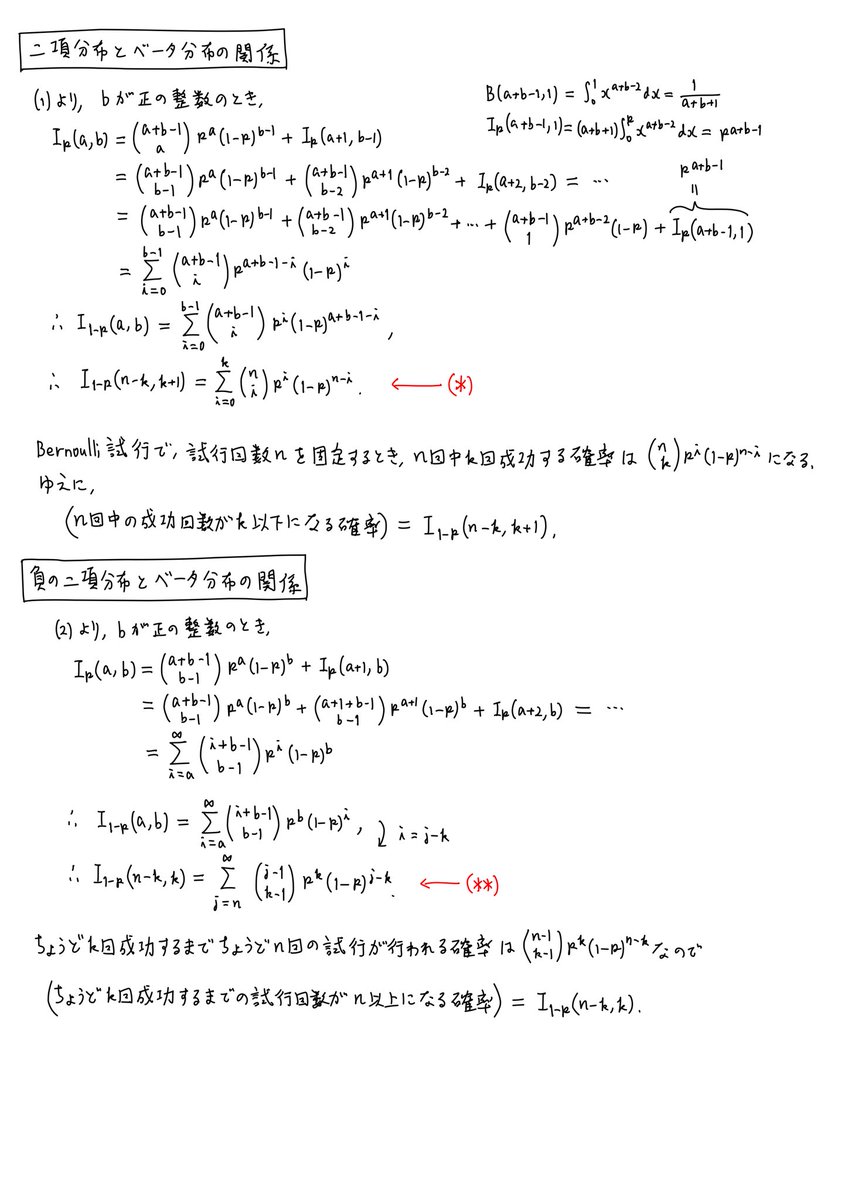 二項分布とベータ分布の関係
(1)より, bが正の整数のとき,
B(a+b-1,1) = ∫₀¹ x^{a+b-2} dx = \frac{1}{a+b+1}
I_p(a+b-1,1) = (a+b+1)∫₀^p x^{a+b-2} dx = p^{a+b-1}
I_p(a,b) = \binom{a+b-1}{a} p^a (1-p)^{b-1} + I_p(a+1, b-1)
= \binom{a+b-1}{b-1} p^a (1-p)^{b-1} + \binom{a+b-1}{b-2} p^{a+1} (1-p)^{b-2} + I_p(a+2, b-2) = ⋯
p^{a+b-1}
||
= \binom{a+b-1}{b-1} p^a (1-p)^{b-1} + \binom{a+b-1}{b-2} p^{a+1} (1-p)^{b-2} + ⋯ + \binom{a+b-1}{1} p^{a+b-2} (1-p) + I_p(a+b-1,1)
= \sum_{i=0}^{b-1} \binom{a+b-1}{i} p^{a+b-1-i} (1-p)^i
∴ I_{1-p}(a,b) = \sum_{i=0}^{b-1} \binom{a+b-1}{i} p^i (1-p)^{a+b-1-i},
∴ I_{1-p}(n-k, k+1) = \sum_{i=0}^{k} \binom{n}{i} p^i (1-p)^{n-i}. ← (*)
Bernoulli試行で, 試行回数nを固定するとき, n回中k回成功する確率は \binom{n}{k} p^i (1-p)^{n-i} になる.
ゆえに,
(n回中の成功回数がk以下になる確率) = I_{1-p}(n-k, k+1).
負の二項分布とベータ分布の関係
(2)より, bが正の整数のとき,
I_p(a,b) = \binom{a+b-1}{b-1} p^a (1-p)^b + I_p(a+1, b)
= \binom{a+b-1}{b-1} p^a (1-p)^b + \binom{a+1+b-1}{b-1} p^{a+1} (1-p)^b + I_p(a+2, b) = ⋯
= \sum_{i=a}^{∞} \binom{i+b-1}{b-1} p^i (1-p)^b
∴ I_{1-p}(a,b) = \sum_{i=a}^{∞} \binom{i+b-1}{b-1} p^b (1-p)^i, i=j-k
∴ I_{1-p}(n-k, k) = \sum_{j=n}^{∞} \binom{j-1}{k-1} p^k (1-p)^{j-k}. ← (**)
ちょうどk回成功するまでちょうどn回の試行が行われる確率は \binom{n-1}{k-1} p^k (1-p)^{n-k} なので
(ちょうどk回成功するまでの試行回数がn以上になる確率) = I_{1-p}(n-k, k).